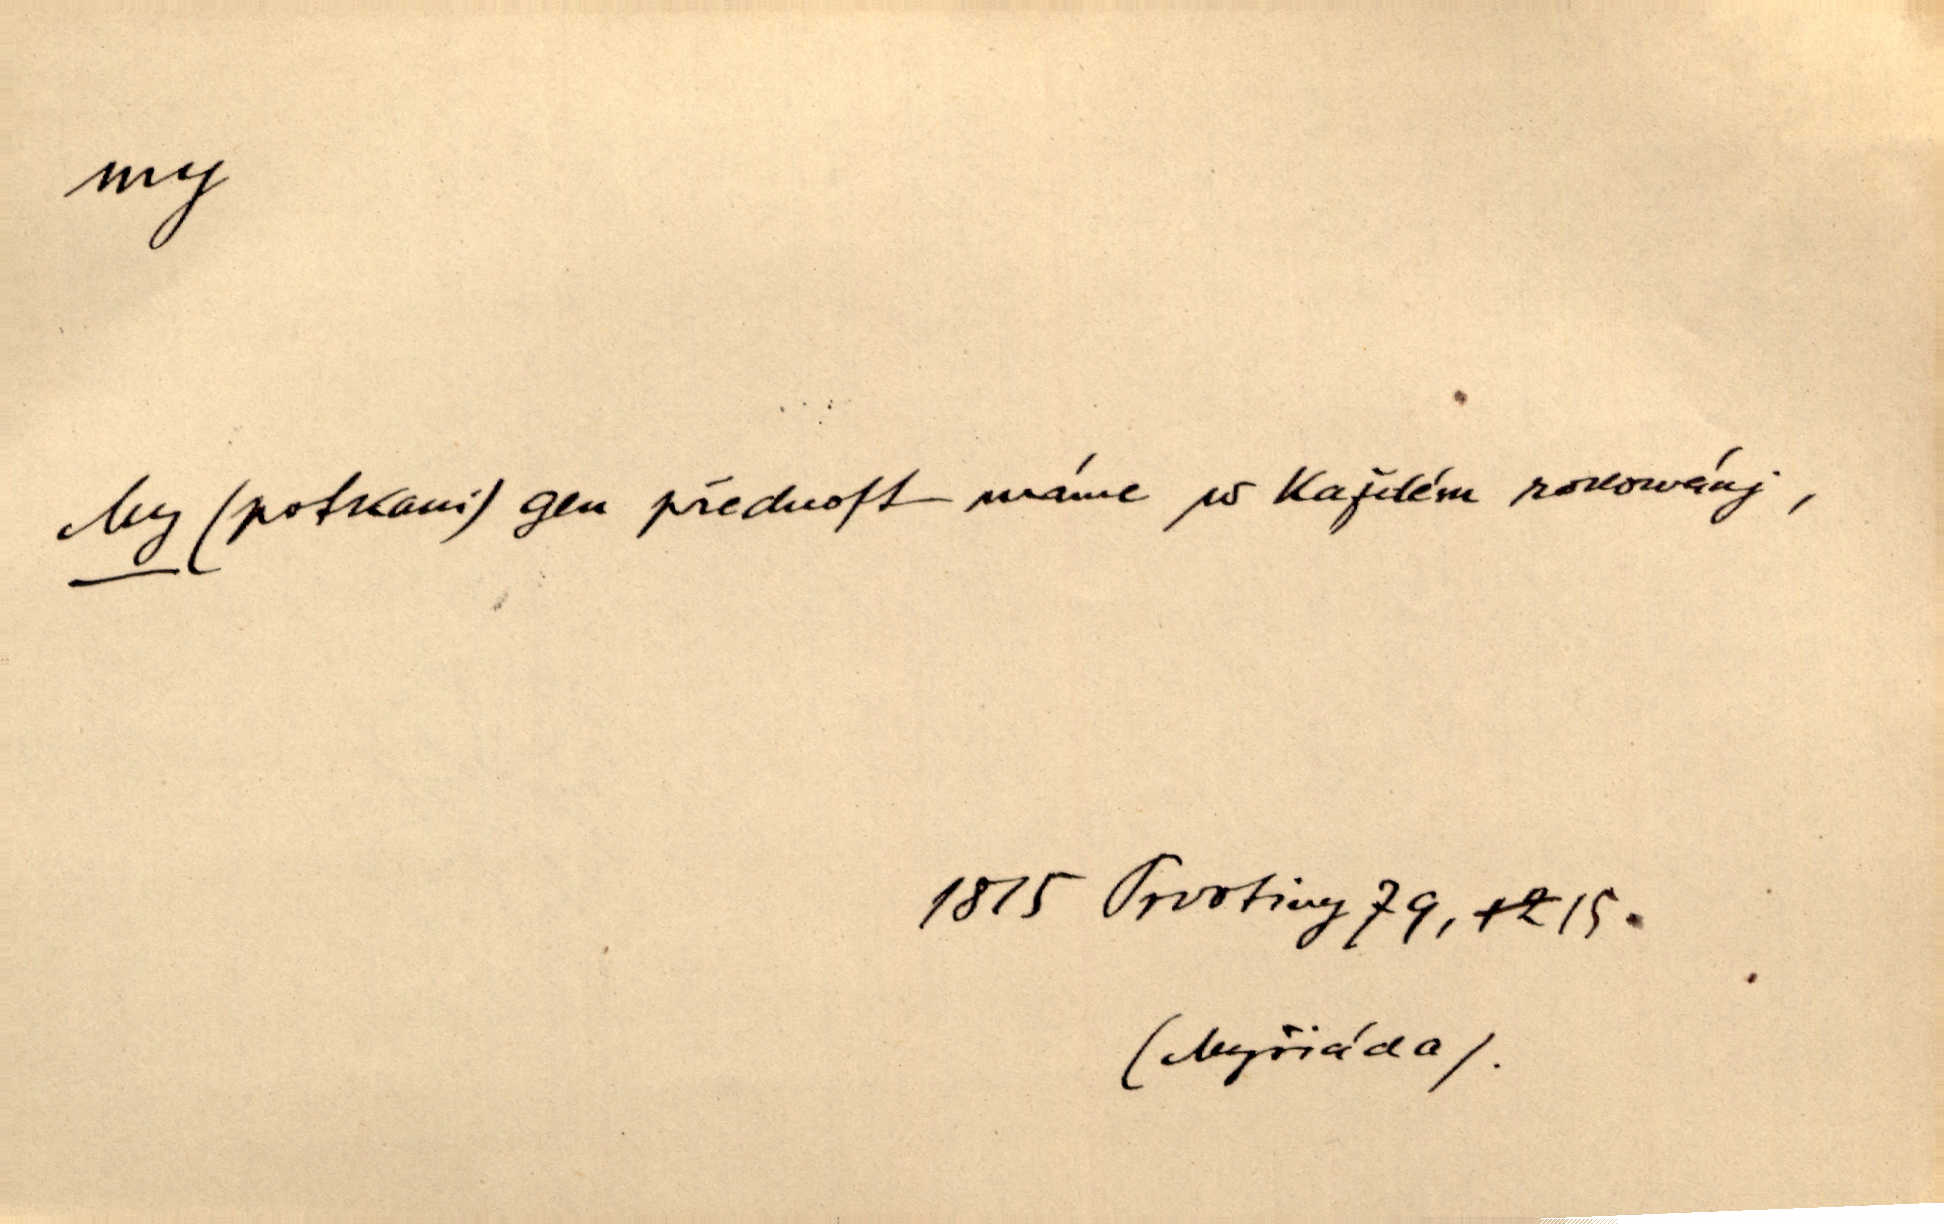 my
My (potkani) gen přednoſt máme w každém rokowánj,
1815 Prvotiny 79, 15.
(Myšiáda).